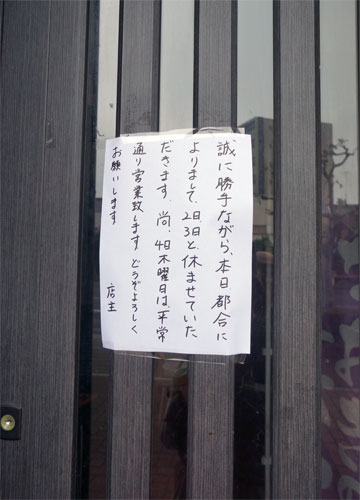 誠に勝手ながら、本日都合に
よりまして、2日、3日と、休ませていた
だきます。尚、4日木曜日は、平常
通り営業致します。どうぞよろしく
お願いします
店主